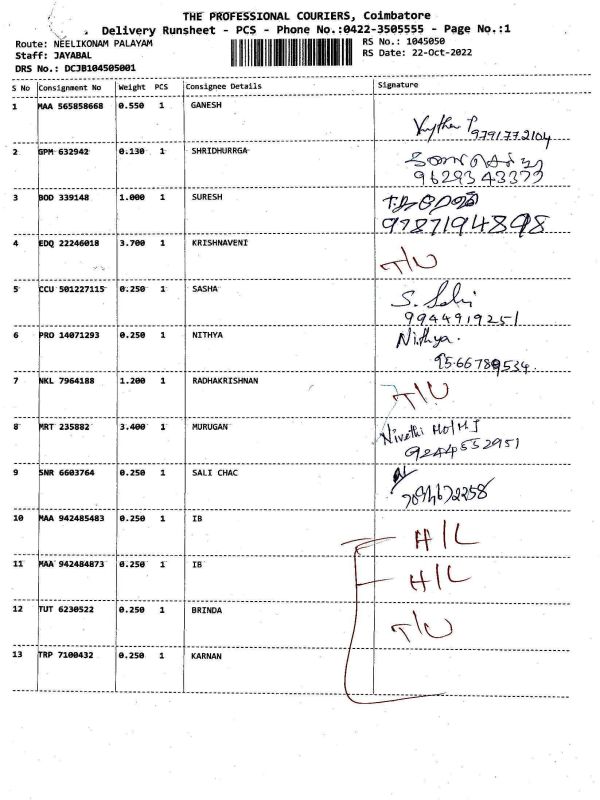 THE PROFESSIONAL COURIERS, Coimbatore
Delivery Runsheet - PCS - Phone No.:0422-3505555 - Page No.:1
Route: NEELIKONAM PALAYAM
RS No.: 1045050
Staff: JAYABAL
RS Date: 22-Oct-2022
DRS No.: DCJB104505001
S No Consignment No Weight PCS Consignee Details Signature
1 MAA 565858668 0.550 1 GANESH
9791772104
2 GPM 632942 0.130 1 SHRIDHURRGA
9629343373
3 BOD 339148 1.000 1 SURESH
9787194898
4 EDQ 22246018 3.700 1 KRISHNAVENI
T/U
5 CCU 501227115 0.250 1 SASHA
S.
9944919251
6 PRO 14071293 0.250 1 NITHYA
Nithya.
9566789534.
7 NKL 7964188 1.200 1 RADHAKRISHNAN
T/U
8 MRT 235882 3.400 1 MURUGAN
Nivethi
9244552951
9 SNR 6603764 0.250 1 SALI CHAC
10 MAA 942485483 0.250 1 IB
H/L
11 MAA 942484873 0.250 1 IB
H/L
12 TUT 6230522 0.250 1 BRINDA
T/U
13 TRP 7100432 0.250 1 KARNAN